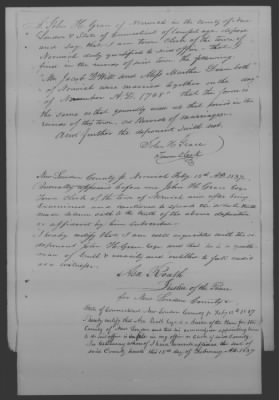 I John H. Grace of Norwich in the County of New
London & State of Connecticut of lawful age depose
and say that I am Town Clerk of the town of
Norwich duly qualified to said office, that I
find in the records of said town the following
"Mr Jacob De Witt and Miss Martha both
of Norwich were married together on the day
of November A.D. 1785" that the form is
the same as that generally used at that period in the
records of this town, as Records of marriages.
And further the deponent saith not.
John H. Grace
Town Clerk
New London County ss Norwich Feby 15th A.D. 1837
Personally appeared before me John H. Grace Esqr
Town Clerk of the town of Norwich and after being
examined and cautioned to speak the whole truth
made solemn oath to the truth of the above deposition
or affidavit by him subscribed.
I hereby certify that I am well acquainted with the
deponent John H. Grace Esqr and that he is a gentleman
of truth & veracity and entitled to full credit
as a witness.
Asa Roath
Justice of the Peace
for New London County
State of Connecticut New London County ss Feby 15th 1837
I hereby certify that Asa Roath Esqr is a Justice of the Peace for the
County of New London and his commission appointing him
to said office is in my office as Clerk of said County.
In testimony whereof I have hereunto affixed the seal of
said County Court this 15th day of February A.D. 1837